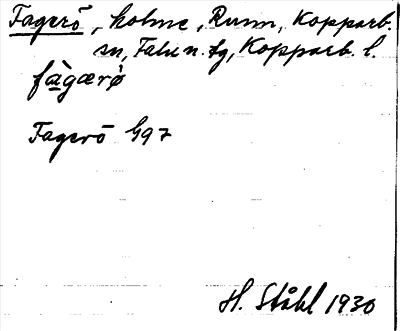 Fagerö, holme, Runn, Kopparb.
sn, Falu n. tg, Kopparb. l.
fàgærø̀
Fagerö G97
H. Ståhl 1930